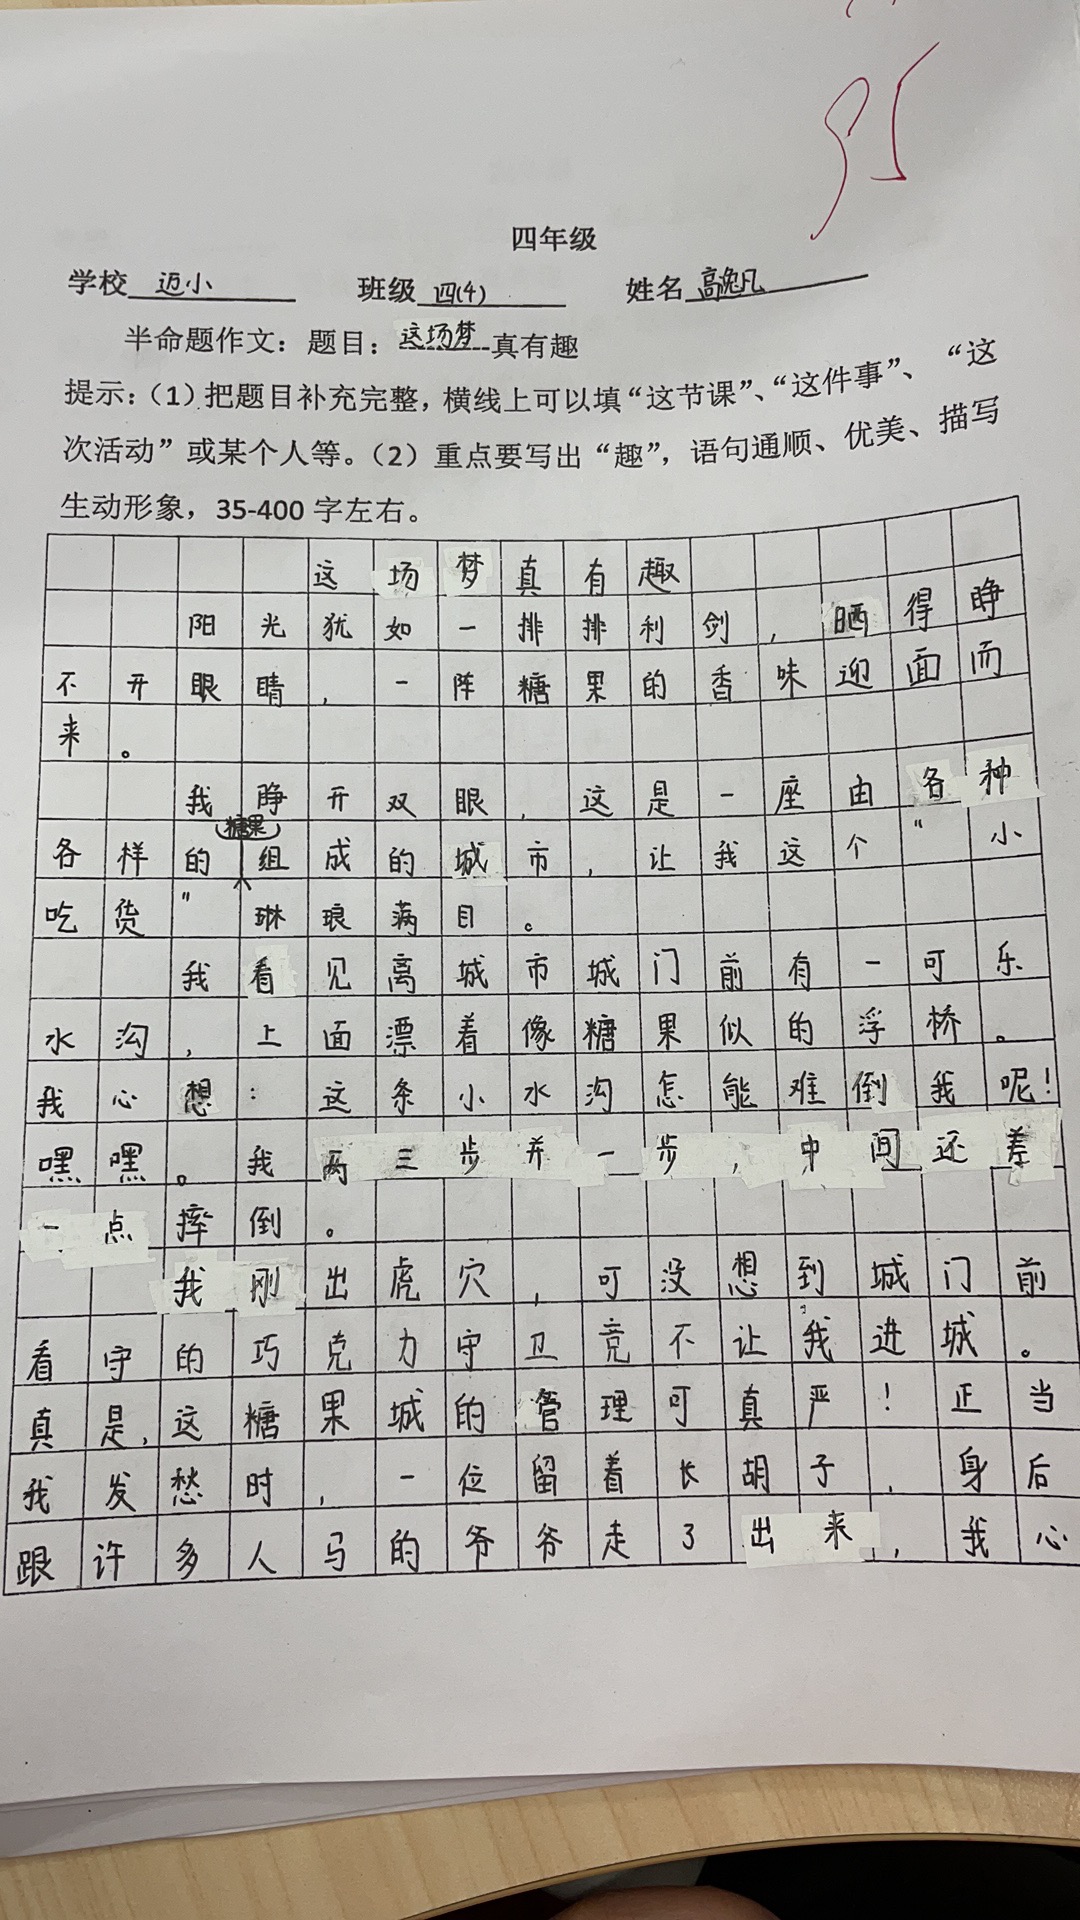 95
四年级
学校 迈小 班级 四(4) 姓名 高逸凡
半命题作文：题目：这场梦真有趣
提示：（1）把题目补充完整，横线上可以填“这节课”、“这件事”、“这
次活动”或某个人等。（2）重点要写出“趣”，语句通顺、优美、描写
生动形象，35-400 字左右。
这场梦真有趣
阳光犹如一排排利剑，晒得睁
不开眼睛，一阵糖果的香味迎面而
来。
我睁开双眼，这是一座由各种
各样的糖果组成的城市，让我这个“小
吃货”琳琅满目。
我看见离城市城门前有一可乐
水沟，上面漂着像糖果似的浮桥。
我心想：这条小水沟怎能难倒我呢！
嘿嘿。我两三步并一步，中间还差
一点摔倒。
我刚出虎穴，可没想到城门前
看守的巧克力守卫竞不让我进城。
真是，这糖果城的管理可真严！正当
我发愁时，一位留着长胡子，身后
跟许多人马的爷爷走了出来，我心